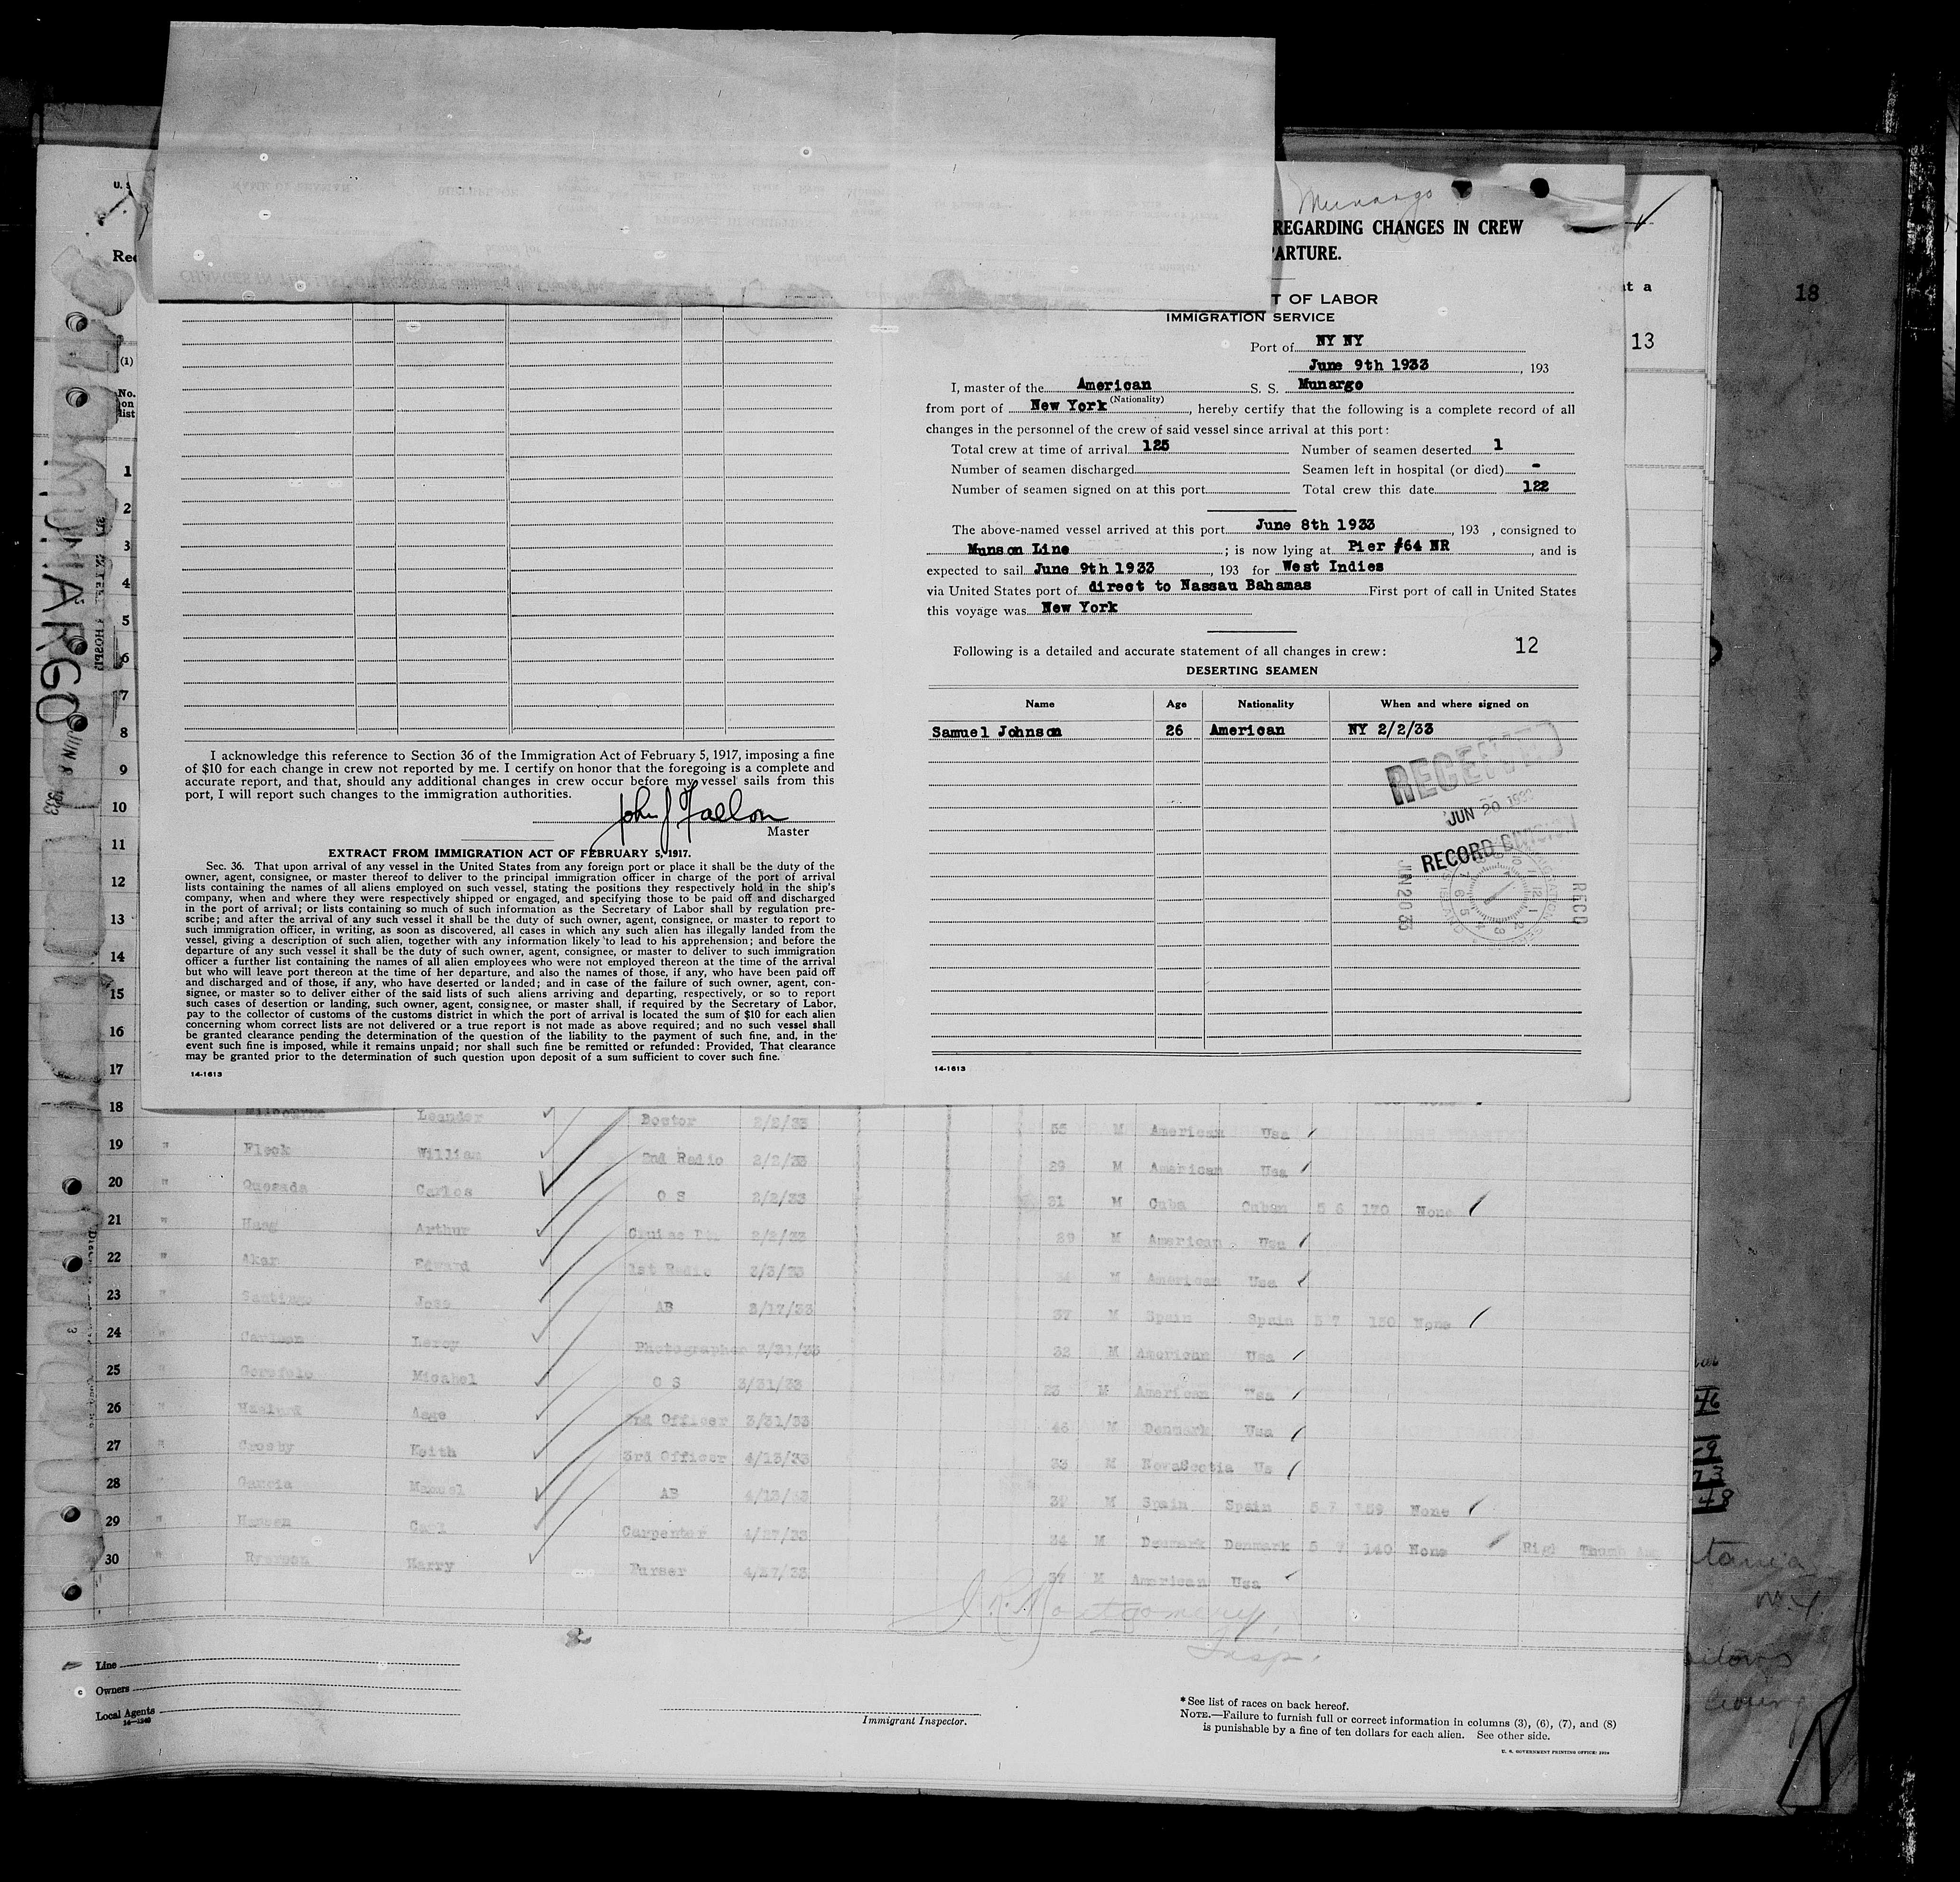 Munargo
REGARDING CHANGES IN CREW
ARTURE.
T OF LABOR
IMMIGRATION SERVICE
Port of NY NY
June 9th 1933, 193
I, master of the American S. S. Munargo
(Nationality)
from port of New York, hereby certify that the following is a complete record of all
changes in the personnel of the crew of said vessel since arrival at this port:
Total crew at time of arrival 125 Number of seamen deserted 1
Number of seamen discharged Seamen left in hospital (or died) -
Number of seamen signed on at this port Total crew this date 122
The above-named vessel arrived at this port June 8th 1933, 193 , consigned to
Munson Line; is now lying at Pier #64 NR, and is
expected to sail June 9th 1933, 193 for West Indies
via United States port of direct to Nassau Bahamas First port of call in United States
this voyage was New York
12
Following is a detailed and accurate statement of all changes in crew:
DESERTING SEAMEN
Name Age Nationality When and where signed on
Samuel Johnson 26 American NY 2/2/33
RECEIVED
JUN 20 1933
RECORD DIVISION
JUN 20 33
RECD
14-1613
I acknowledge this reference to Section 36 of the Immigration Act of February 5, 1917, imposing a fine
of $10 for each change in crew not reported by me. I certify on honor that the foregoing is a complete and
accurate report, and that, should any additional changes in crew occur before my vessel sails from this
port, I will report such changes to the immigration authorities.
John J Fallon
Master
EXTRACT FROM IMMIGRATION ACT OF FEBRUARY 5, 1917.
Sec. 36. That upon arrival of any vessel in the United States from any foreign port or place it shall be the duty of the
owner, agent, consignee, or master thereof to deliver to the principal immigration officer in charge of the port of arrival
lists containing the names of all aliens employed on such vessel, stating the positions they respectively hold in the ship's
company, when and where they were respectively shipped or engaged, and specifying those to be paid off and discharged
in the port of arrival; or lists containing so much of such information as the Secretary of Labor shall by regulation pre-
scribe; and after the arrival of any such vessel it shall be the duty of such owner, agent, consignee, or master to report to
such immigration officer, in writing, as soon as discovered, all cases in which any such alien has illegally landed from the
vessel, giving a description of such alien, together with any information likely to lead to his apprehension; and before the
departure of any such vessel it shall be the duty of such owner, agent, consignee, or master to deliver to such immigration
officer a further list containing the names of all alien employees who were not employed thereon at the time of the arrival
but who will leave port thereon at the time of her departure, and also the names of those, if any, who have been paid off
and discharged and of those, if any, who have deserted or landed; and in case of the failure of such owner, agent, con-
signee, or master so to deliver either of the said lists of such aliens arriving and departing, respectively, or so to report
such cases of desertion or landing, such owner, agent, consignee, or master shall, if required by the Secretary of Labor,
pay to the collector of customs of the customs district in which the port of arrival is located the sum of $10 for each alien
concerning whom correct lists are not delivered or a true report is not made as above required; and no such vessel shall
be granted clearance pending the determination of the question of the liability to the payment of such fine, and, in the
event such fine is imposed, while it remains unpaid; nor shall such fine be remitted or refunded: Provided, That clearance
may be granted prior to the determination of such question upon deposit of a sum sufficient to cover such fine.
14-1613
18
13
MUNARGO
(1)
No.
on
list
1
2
3
4
5
6
7
8
9
10
11
12
13
14
15
16
17
18 Leander 2/2/33 55 M American Usa
19 " Fleck William 2nd Radio 2/2/33 29 M American Usa
20 " Quesada Carlos O S 2/2/33 31 M Cuba Cuban 5 6 170 None
21 " Haag Arthur 2/2/33 29 M American Usa
22 " Aker Edward 1st Radio M American Usa
23 " Santiago Jose AB 37 M Spain Spain 5 7 150 None
24 " Carlson Leroy Photographer 3/31/33 32 M American Usa
25 " Micahel O S 3/31/33 23 M American Usa
26 " Aage 2nd Officer 3/31/33 46 M Denmark Usa
27 " Crosby Keith 3rd Officer 4/13/33 33 M NovaScotia Us
28 " Garcia Manuel AB 4/13/33 M Spain Spain 5 7 159 None
29 " Hansen Carl Carpenter 4/27/33 34 M Denmark Denmark 5 7 140 None Thumb
30 " Ryerson Harry Purser 4/27/33 37 M American Usa
Montgomery
Insp.
Line
Owners
Local Agents
14-1240
Immigrant Inspector.
*See list of races on back hereof.
NOTE.—Failure to furnish full or correct information in columns (3), (6), (7), and (8)
is punishable by a fine of ten dollars for each alien. See other side.
U. S. GOVERNMENT PRINTING OFFICE: 1929